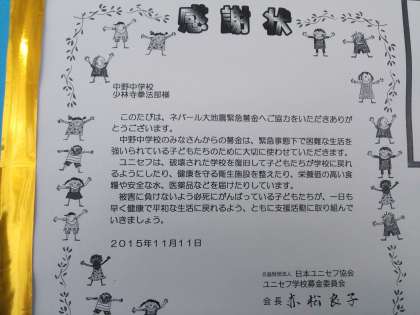 感謝状
中野中学校
少林寺拳法部様
このたびは、ネパール大地震緊急募金へご協力をいただきありが
とうございます。
中野中学校のみなさんからの募金は、緊急事態下で困難な生活を
強いられている子どもたちのために大切に使わせていただきます。
ユニセフは、破壊された学校を復旧して子どもたちが学校に戻れ
るようにしたり、健康を守る衛生施設を整えたり、栄養価の高い食
糧や安全な水、医薬品などを届けたりしています。
被害に負けないよう必死にがんばっている子どもたちが、一日も
早く健康で平和な生活に戻れるよう、ともに支援活動に取り組んで
いきましょう。
2015年11月11日
公益財団法人 日本ユニセフ協会
ユニセフ学校募金委員会
会長 赤松良子